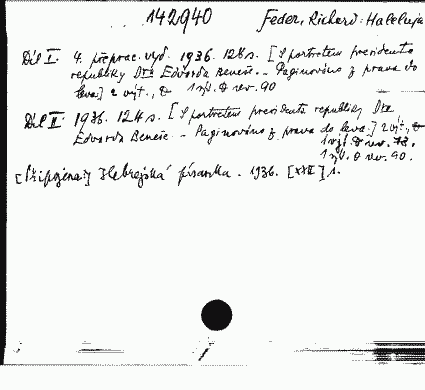 142940 Feder, Richard: Haleluja
Díl I. 4. přeprac. vyd. 1936. 128 s. [S portretem presidenta
republiky Dra Edvarda Beneše. - Paginováno z prava do
leva.] 2 výt., 1 výt. rev. 90
Díl II. 1936. 124 s. [S portretem presidenta republiky Dra
Edvarda Beneše. - Paginováno z prava do leva.] 2 výt.,
1 výt. rev. 78.
1 výt. rev. 90.
[Připojena:] Hebrejská písanka. 1936. [XXII] s.